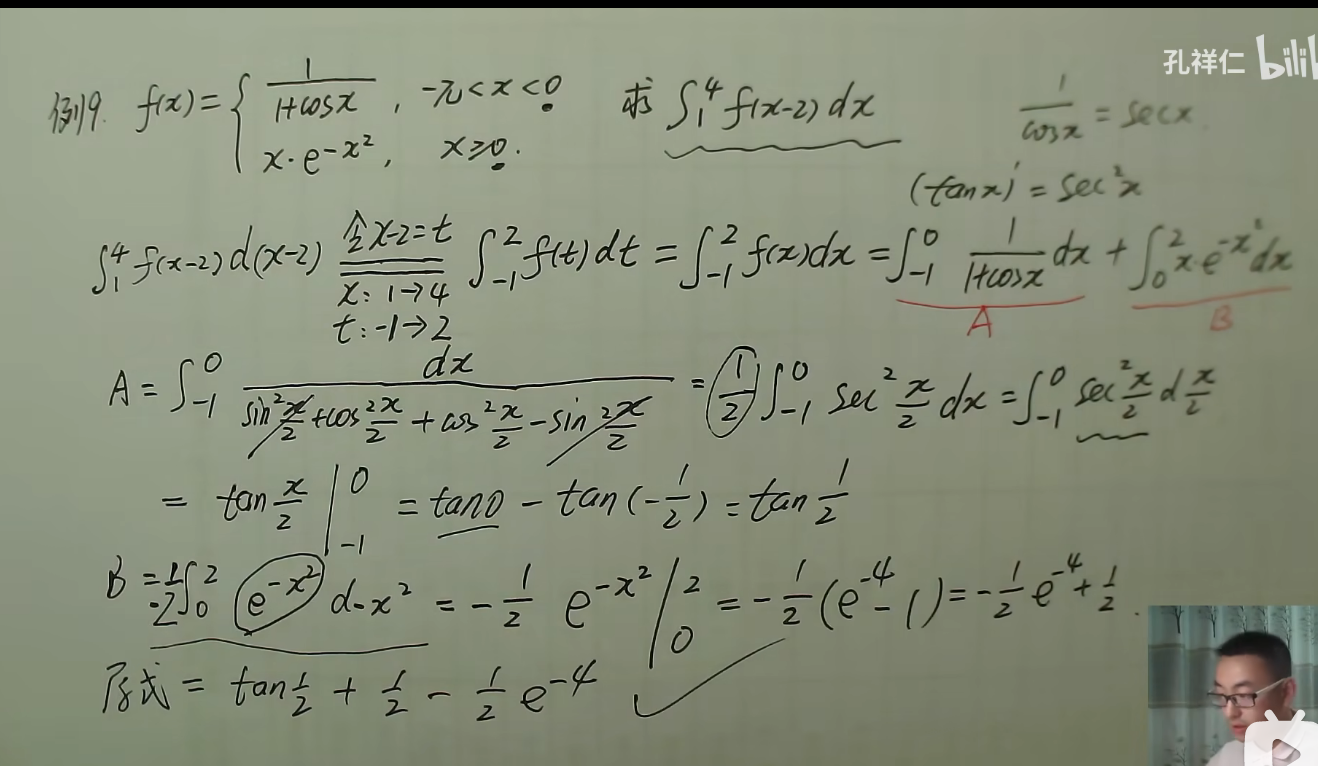 孔祥仁 bilibili
例9. f(x) = { 1/(1+cosx), -π<x<0 求 ∫₁⁴ f(x-2)dx
x·e^{-x²}, x≥0.
1/cosx = secx
(tanx)' = sec²x
∫₁⁴ f(x-2)d(x-2) 令x-2=t ∫₋₁² f(t)dt = ∫₋₁² f(x)dx = ∫₋₁⁰ 1/(1+cosx) dx + ∫₀² x·e^{-x²}dx
x: 1→4
t: -1→2
A B
A = ∫₋₁⁰ dx/(sin²x/2+cos²x/2+cos²x/2-sin²x/2) = 1/2 ∫₋₁⁰ sec² x/2 dx = ∫₋₁⁰ sec² x/2 d x/2
= tan x/2 |₋₁⁰ = tan0 - tan(-1/2) = tan 1/2
B = 1/-2 ∫₀² e^{-x²} d-x² = -1/2 e^{-x²} |₀² = -1/2 (e^{-4} - 1) = -1/2 e^{-4} + 1/2.
原式 = tan 1/2 + 1/2 - 1/2 e^{-4}